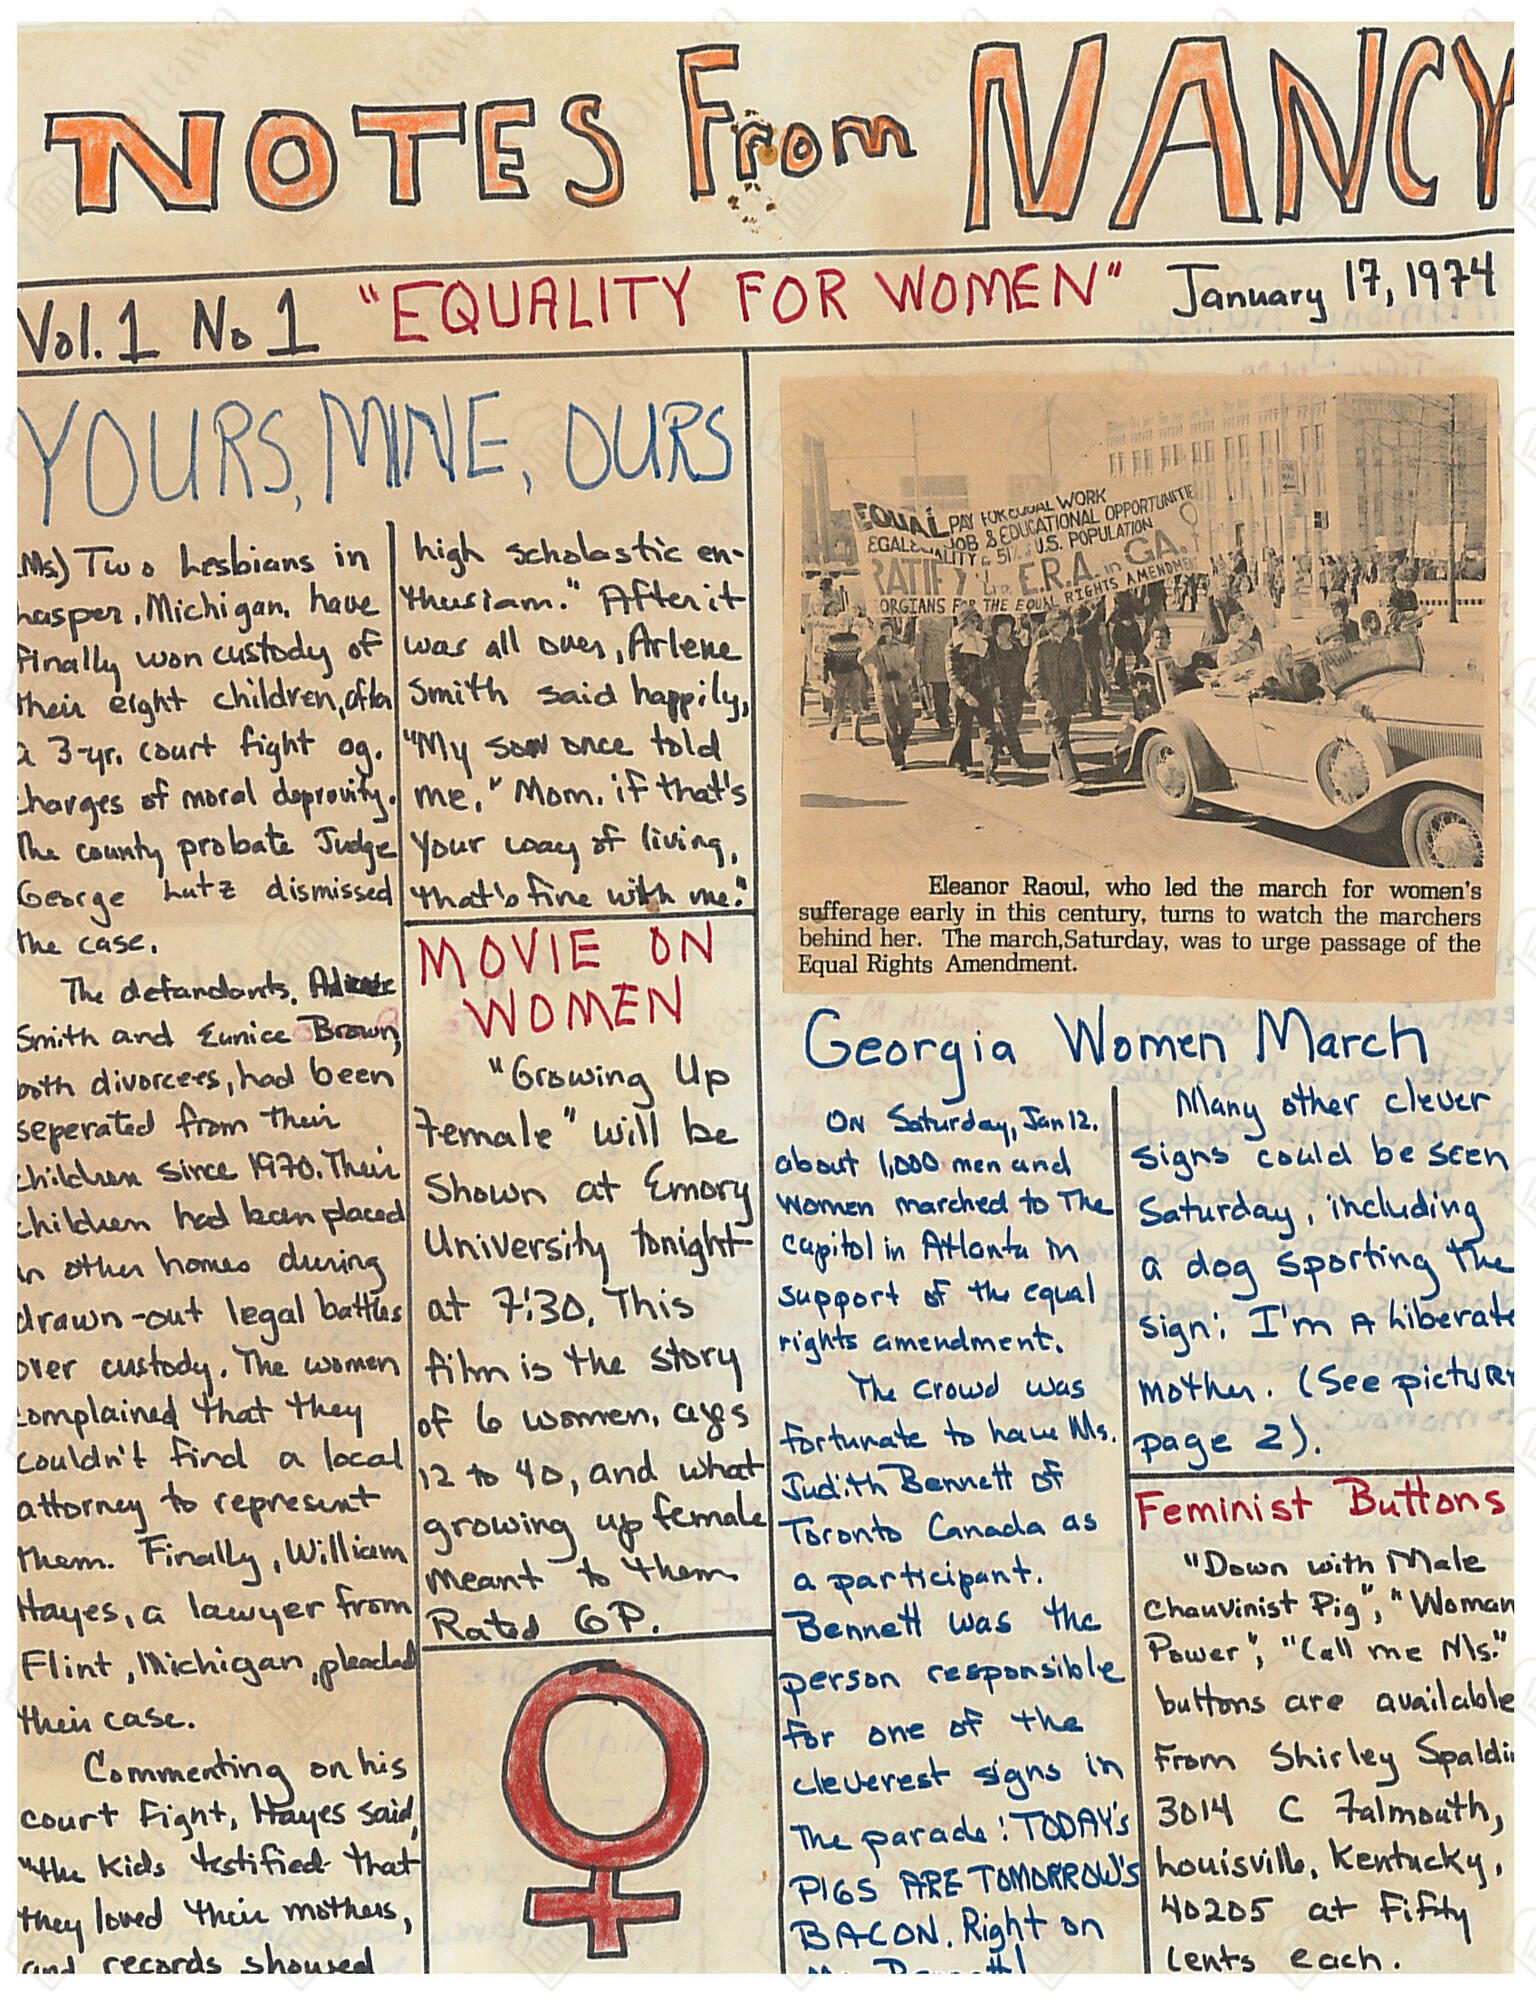 NOTES From NANCY
Vol. 1 No 1 "EQUALITY FOR WOMEN" January 17, 1974
YOURS, MINE, OURS
Ms) Two Lesbians in
hasper, Michigan, have
finally won custody of
their eight children, after
a 3-yr. court fight ag.
charges of moral depravity.
The county probate Judge
George Lutz dismissed
the case.
The defandants,
Smith and Eunice Brown,
both divorcees, had been
seperated from their
children since 1970. Their
children had been placed
in other homes during
drawn-out legal battles
over custody. The women
complained that they
couldn't find a local
attorney to represent
them. Finally, William
Hayes, a lawyer from
Flint, Michigan, pleaded
their case.
Commenting on his
court fight, Hayes said,
"the kids testified that
they loved their mothers,
and records showed
high scholastic en-
thusiam." After it
was all over, Arlene
Smith said happily,
"My son once told
me, "Mom, if that's
your way of living,
that's fine with me."
MOVIE ON
WOMEN
"Growing Up
Female" will be
shown at Emory
University tonight
at 7:30. This
film is the story
of 6 women, ages
12 to 40, and what
growing up female
meant to them.
Rated GP.
EQUAL PAY FOR EQUAL WORK
JOB & EDUCATIONAL OPPORTUNITIE
51% U.S. POPULATION
RATIFY the E.R.A. in GA.
ORGIANS FOR THE EQUAL RIGHTS AMENDMENT
ONE WAY
Eleanor Raoul, who led the march for women's
sufferage early in this century, turns to watch the marchers
behind her. The march,Saturday, was to urge passage of the
Equal Rights Amendment.
Georgia Women March
On Saturday, Jan 12.
about 1,000 men and
women marched to the
capitol in Atlanta in
support of the equal
rights amendment.
The crowd was
fortunate to have Ms.
Judith Bennett of
Toronto Canada as
a participant.
Bennett was the
person responsible
for one of the
cleverest signs in
the parade: TODAY'S
PIGS ARE TOMORROW'S
BACON. Right on
Ms. Bennett!
Many other clever
signs could be seen
Saturday, including
a dog sporting the
sign: I'm A Liberate
mother. (See picture
page 2).
Feminist Buttons
"Down with Male
Chauvinist Pig", "Woman
Power", "Call me Ms."
buttons are available
from Shirley Spaldi
3014 C Falmouth,
Louisville, Kentucky,
40205 at Fifty
cents each.